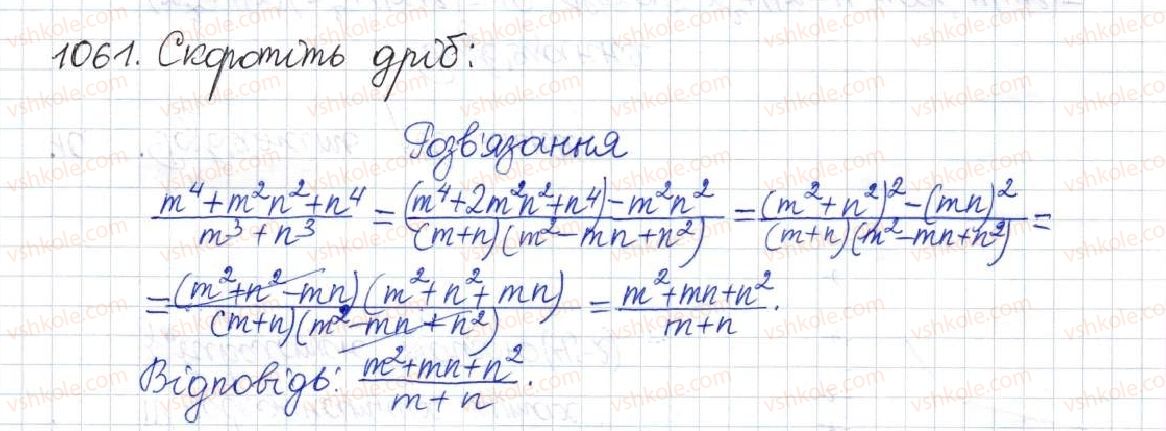 1061. Скоротіть дріб:
Розв'язання
(m⁴+m²n²+n⁴)/(m³+n³) = ((m⁴+2m²n²+n⁴)-m²n²)/((m+n)(m²-mn+n²)) = ((m²+n²)²-(mn)²)/((m+n)(m²-mn+n²)) =
= ((m²+n²-mn)(m²+n²+mn))/((m+n)(m²-mn+n²)) = (m²+mn+n²)/(m+n).
Відповідь: (m²+mn+n²)/(m+n).